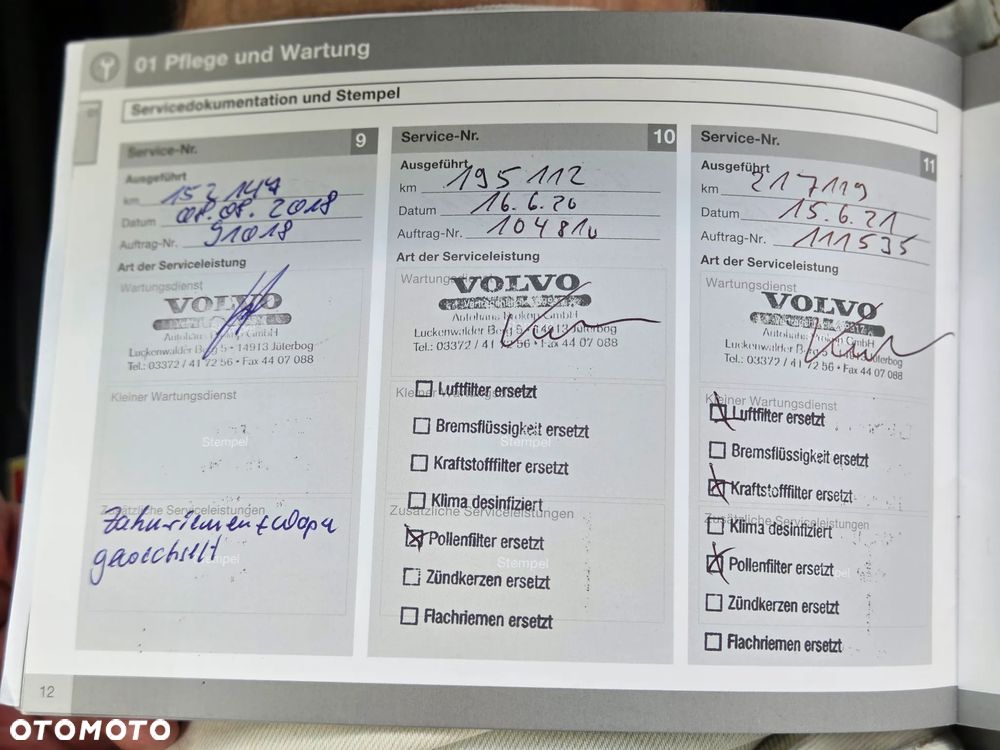 01 Pflege und Wartung
01
Servicedokumentation und Stempel
Service-Nr. 9
Ausgeführt
km 152147
Datum 08.08.2018
Auftrag-Nr. 91018
Art der Serviceleistung
Wartungsdienst
VOLVO
Luckenwalder Berg 5 • 14913 Jüterbog
Tel.: 03372 / 41 72 56 • Fax 44 07 088
Kleiner Wartungsdienst
Stempel
Zusätzliche Serviceleistungen
Zahnriemen + Wapu
gewechselt
Stempel
Service-Nr. 10
Ausgeführt
km 195112
Datum 16.6.20
Auftrag-Nr.
Art der Serviceleistung
Wartungsdienst
VOLVO
Autohaus GmbH
Luckenwalder Berg 5 • 14913 Jüterbog
Tel.: 03372 / 41 72 56 • Fax 44 07 088
Luftfilter ersetzt
Bremsflüssigkeit ersetzt
Stempel
Kraftstofffilter ersetzt
Klima desinfiziert
Zusätzliche Serviceleistungen
Pollenfilter ersetzt
Stempel
Zündkerzen ersetzt
Flachriemen ersetzt
Service-Nr. 11
Ausgeführt
km 217119
Datum 15.6.21
Auftrag-Nr. 111535
Art der Serviceleistung
Wartungsdienst
VOLVO
Autohaus GmbH
Luckenwalder Berg 5 • 14913 Jüterbog
Tel.: 03372 / 41 72 56 • Fax 44 07 088
Kleiner Wartungsdienst
Luftfilter ersetzt
Bremsflüssigkeit ersetzt
Kraftstofffilter ersetzt
Zusätzliche Serviceleistungen
Klima desinfiziert
Pollenfilter ersetzt
Zündkerzen ersetzt
Flachriemen ersetzt
12
OTOMOTO